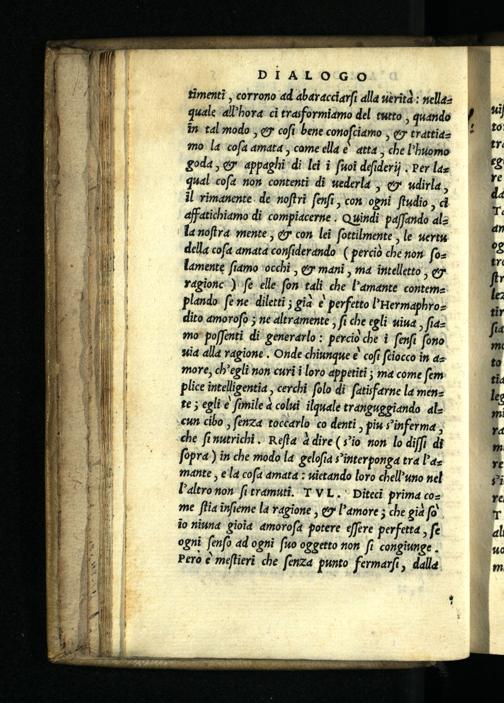 DIALOGO
timenti, corrono ad abaracciarsi alla uerità: nella=
quale all'hora ci trasformiamo del tutto, quando
in tal modo, & cosi bene conosciamo, & trattia=
mo la cosa amata, come ella è atta, che l'huomo
goda, & appaghi di lei i suoi desiderij. Per la=
qual cosa non contenti di uederla, & udirla,
il rimanente de nostri sensi, con ogni studio, ci
affatichiamo di compiacerne. Quindi passando al=
la nostra mente, & con lei sottilmente, le uertu
della cosa amata considerando (perciò che non so=
lamente siamo occhi, & mani, ma intelletto, &
ragione) se elle son tali che l'amante contem=
plando se ne diletti; già è perfetto l'Hermaphro=
dito amoroso; ne altramente, si che egli uiua, sia=
mo possenti di generarlo: perciò che i sensi sono
uia alla ragione. Onde chiunque è cosi sciocco in a=
more, ch'egli non curi i loro appetiti; ma come sem
plice intelligentia, cerchi solo di satisfarne la men=
te; egli è simile à colui ilquale trangugiando al=
cun cibo, senza toccarlo co denti, piu s'inferma,
che si nutrichi. Resta à dire (s'io non lo dissi di
sopra) in che modo la gelosia s'interponga tra l'a=
mante, e la cosa amata: uietando loro chell'uno nel
l'altro non si tramuti. TVL. Diteci prima co=
me stia insieme la ragione, & l'amore; che già sò
io niuna gioia amorosa potere essere perfetta, se
ogni senso ad ogni suo oggetto non si congiunge.
Però è mestieri che senza punto fermarsi, dalla